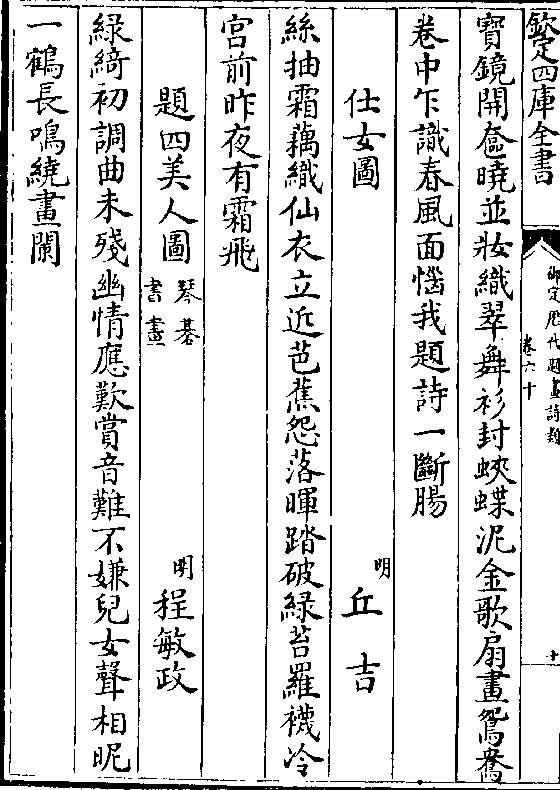 欽定四庫全書
御定歷代題畫詩類
卷六十
十
寶鏡開奩曉並妝織翠舞衫封蛺蝶泥金歌扇畫鴛鴦
卷中乍識春風面惱我題詩一斷腸
仕女圖
明
丘吉
絲抽霜藕織仙衣立近芭蕉怨落暉踏破綠苔羅襪冷
宮前昨夜有霜飛
題四美人圖
琴棊
書畫
明
程敏政
綠綺初調曲未殘幽情應歎賞音難不嫌兒女聲相昵
一鶴長鳴繞畫闌